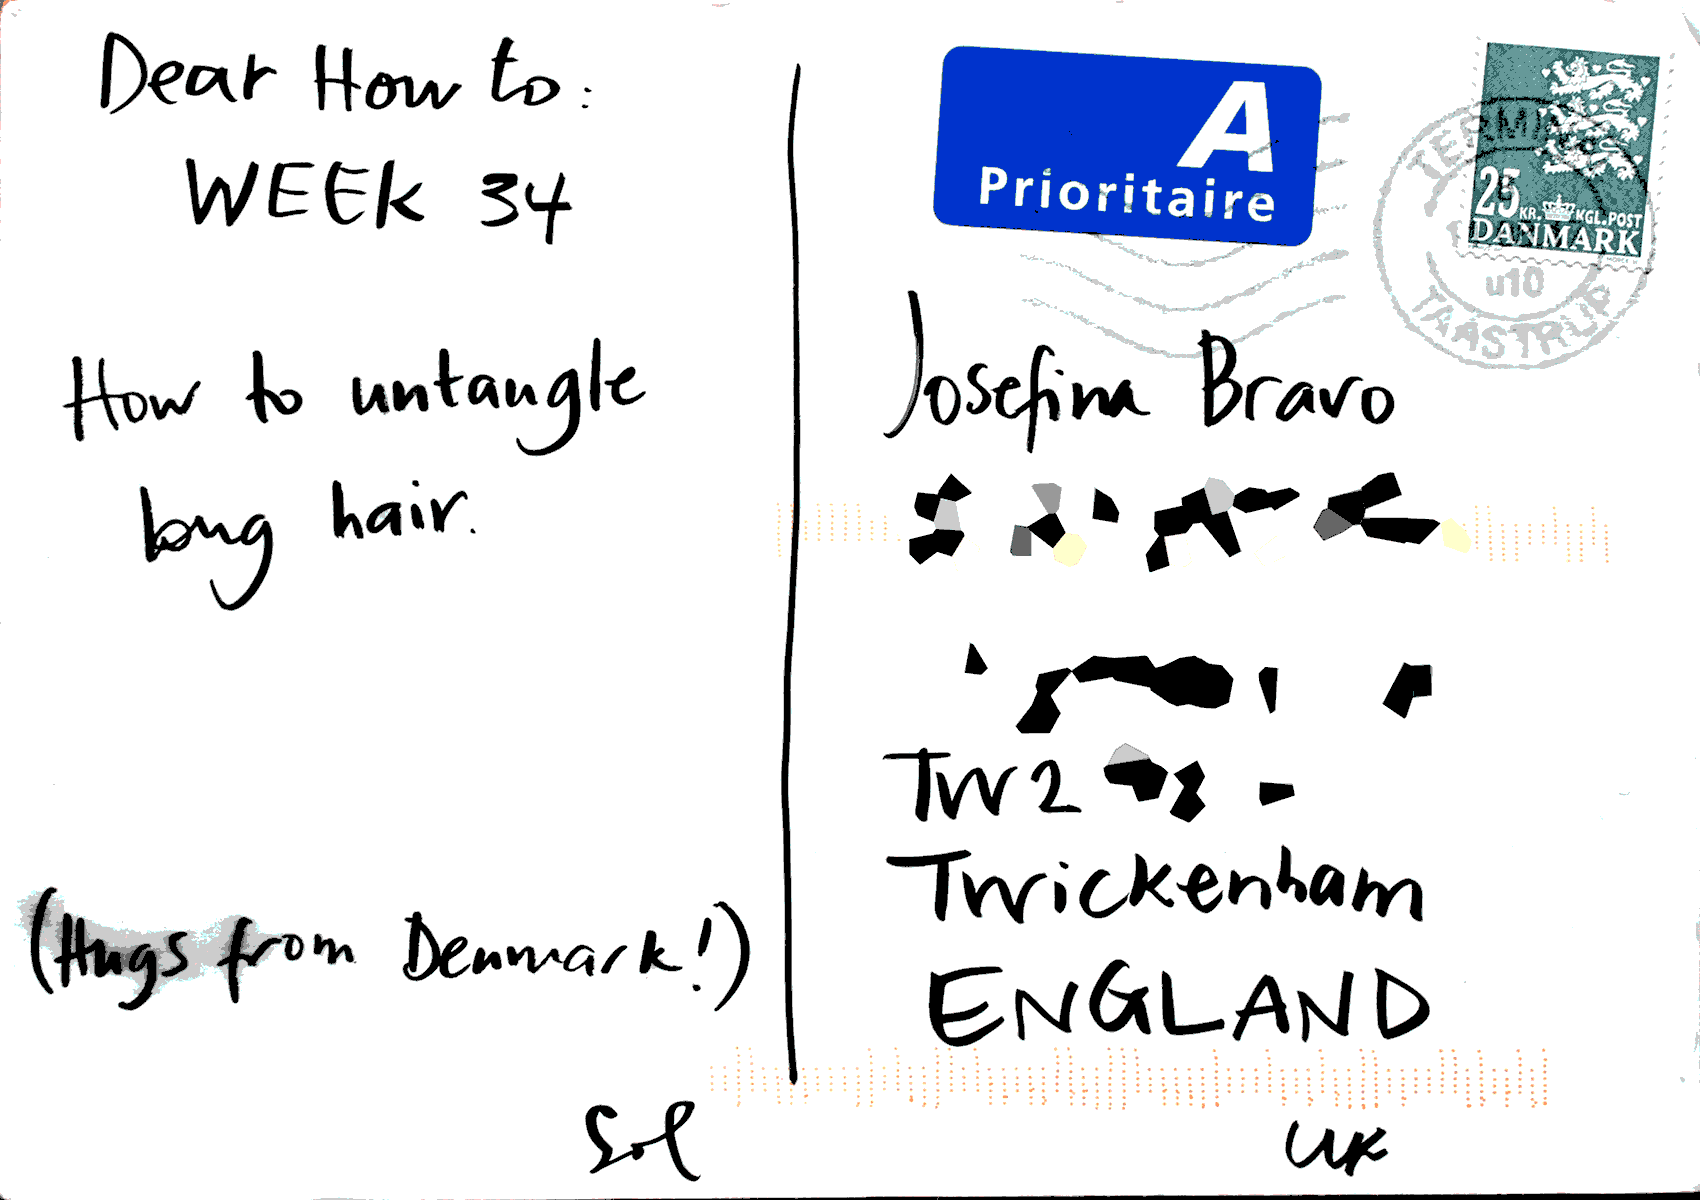 Dear How to:
WEEK 34
How to untangle
long hair.
(Hugs from Denmark!)
Sol
A
Prioritaire
25 KR. KGL.POST
DANMARK
u10
TAASTRUP
Josefina Bravo
TW2
Twickenham
ENGLAND
UK